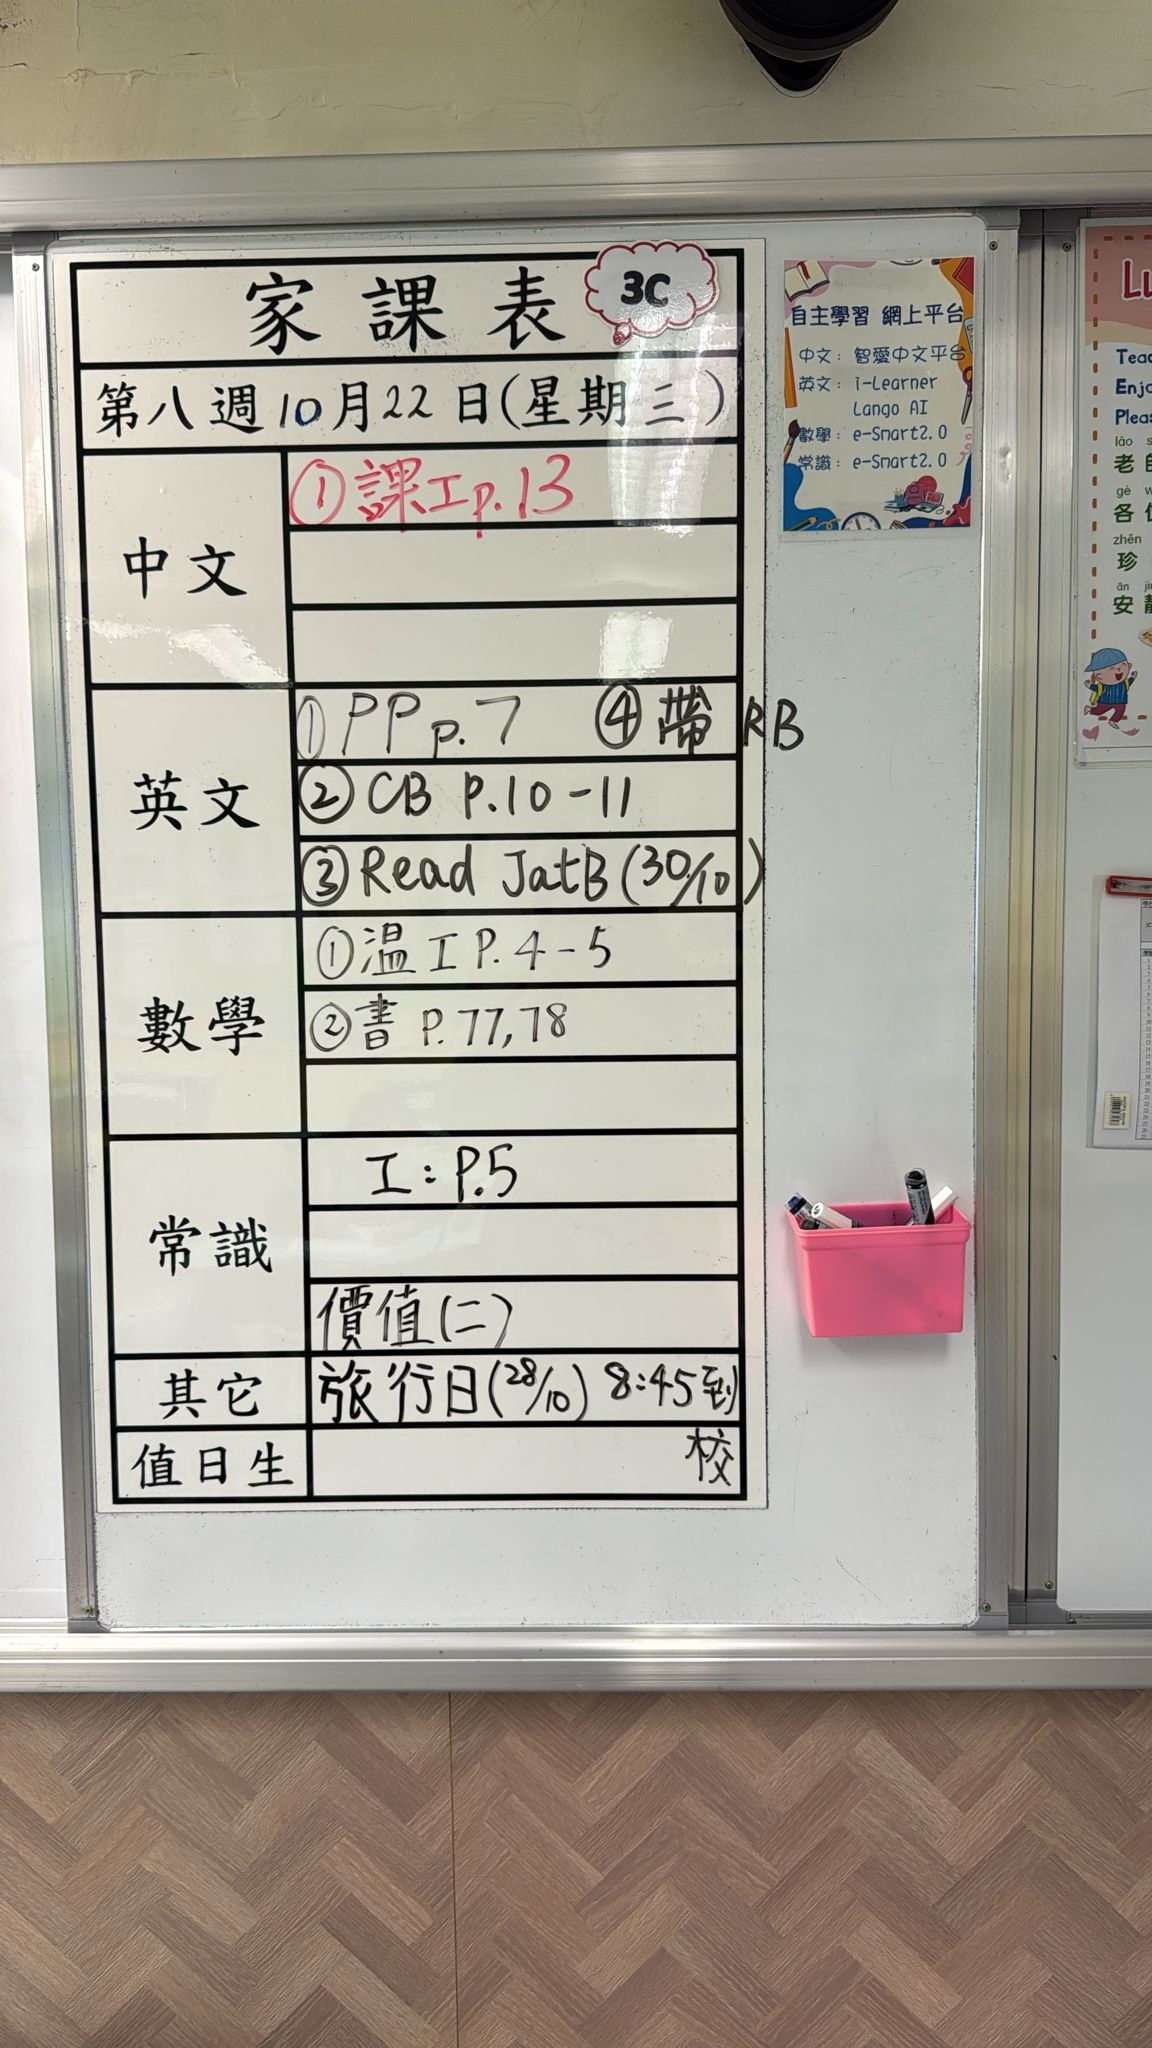 家課表
3C
第八週10月22日(星期三)
中文
①課工p.13
英文
①PP p.7 ④帶RB
②CB P.10-11
③Read JatB (30/10)
數學
①温工P.4-5
②書 P.77,78
常識
工:P.5
價值(二)
其它
旅行日(28/10) 8:45到
校
值日生
自主學習 網上平台
中文: 智愛中文平台
英文: i-Learner
Lango AI
數學: e-Smart2.0
常識: e-Smart2.0
lǎo
老
gè
各
zhēn
珍
ān
安